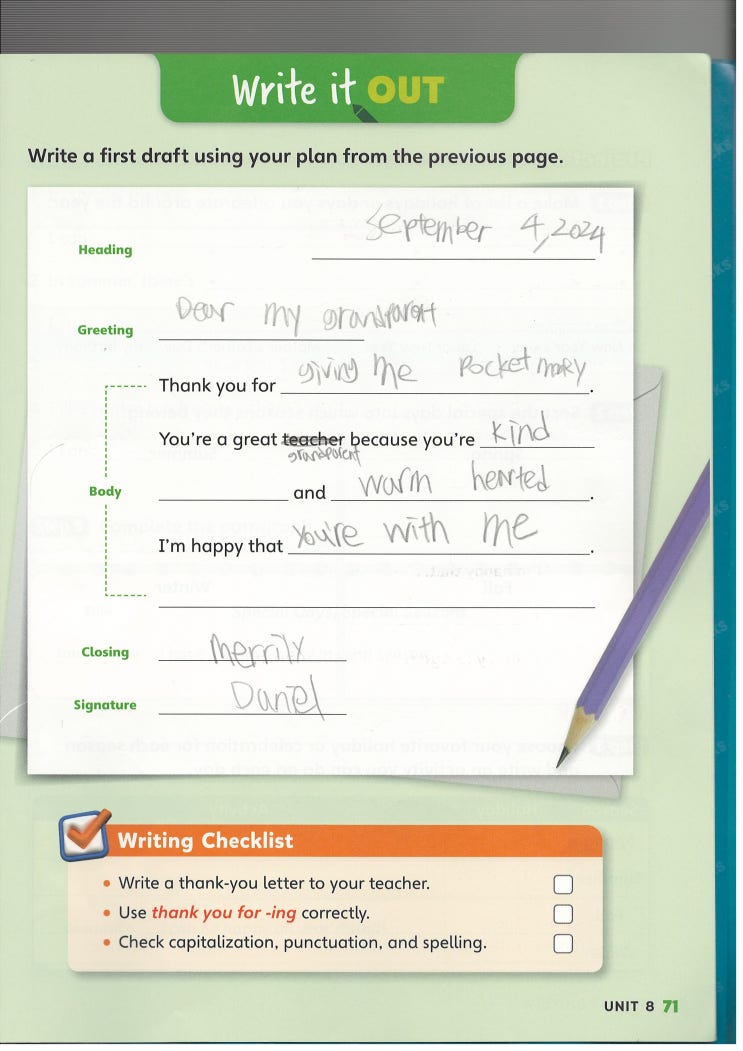 Write it OUT
Write a first draft using your plan from the previous page.
Heading September 4, 2024
Greeting Dear my grandparent
Thank you for giving me pocket money.
You're a great teacher because you're kind
grandparent
Body and warm hearted.
I'm happy that you're with me.
Closing Merrily
Signature Daniel
Writing Checklist
• Write a thank-you letter to your teacher.
• Use thank you for -ing correctly.
• Check capitalization, punctuation, and spelling.
UNIT 8 71